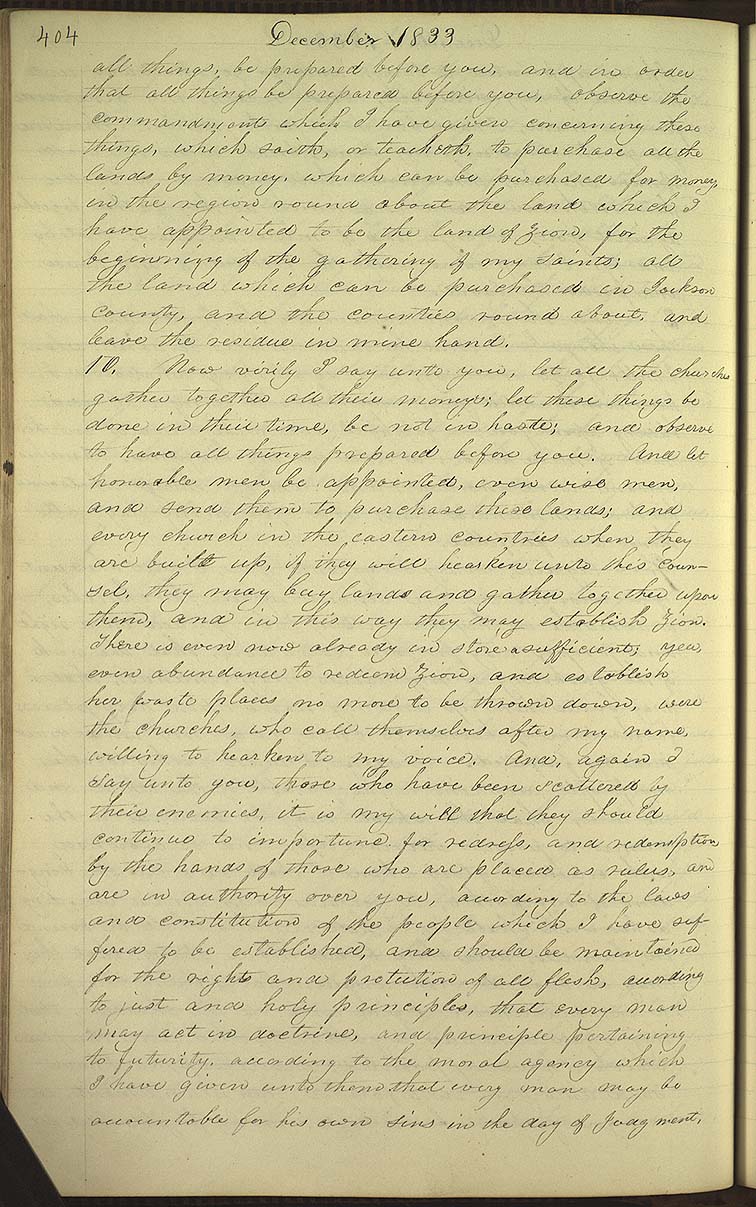 404 December 1833
all things, be prepared before you, and in order
that all things be prepared before you, observe the
commandments which I have given concerning these
things, which saith, or teacheth, to purchase all the
lands by money, which can be purchased for money,
in the region round about the land which I
have appointed to be the land of Zion, for the
beginning of the gathering of my saints; all
the land which can be purchased in Jackson
county, and the counties round about, and
leave the residue in mine hand.
10. Now virily I say unto you, let all the churches
gather together all their moneys; let these things be
done in their time, be not in haste; and observe
to have all things prepared before you. And let
honorable men be appointed, even wise men,
and send them to purchase these lands; and
every church in the eastern countries when they
are built up, if they will hearken unto this coun-
sel, they may buy lands and gather together upon
them, and in this way they may establish Zion.
There is even now already in store a sufficient; yea,
even abundance to redeem Zion, and establish
her waste places no more to be thrown down, were
the churches, who call themselves after my name,
willing to hearken to my voice. And, again I
say unto you, those who have been scattered by
their enemies, it is my will that they should
continue to importune for redress, and redemption,
by the hands of those who are placed as rulers, and
are in authority over you, according to the laws
and constitution of the people which I have suf
fered to be established, and should be maintained
for the rights and protection of all flesh, according
to just and holy principles, that every man
may act in doctrine, and principle pertaining
to futurity, according to the moral agency which
I have given unto them that every man may be
accountable for his own sins in the day of Judgment,